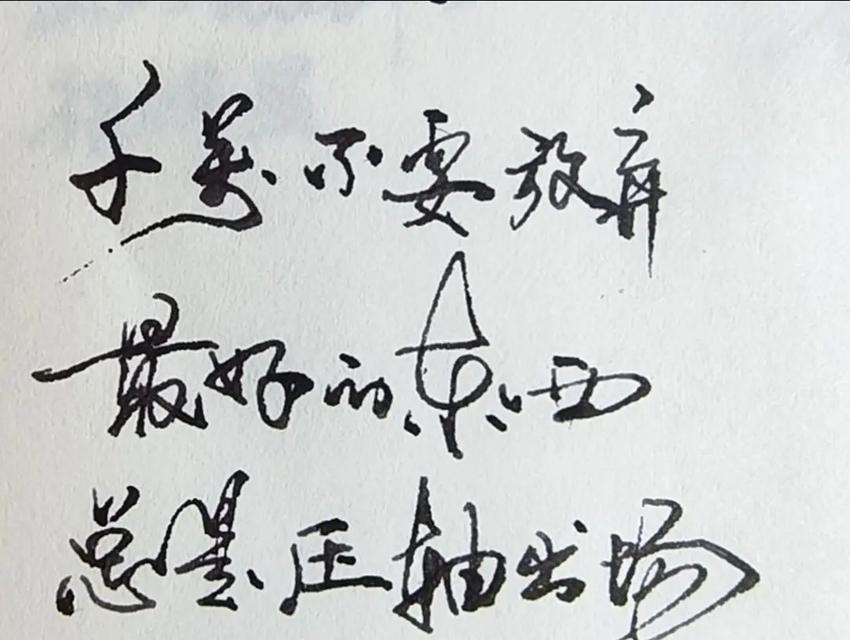 千萬不要放弃
最好的东西
总是压轴出场